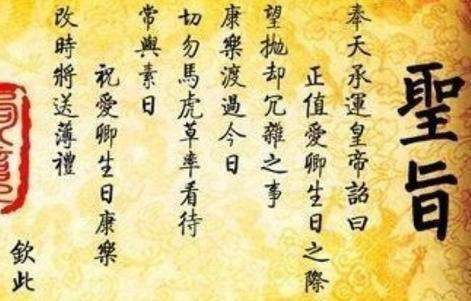 聖旨
奉天承運皇帝詔曰
正值愛卿生日之際
望抛却冗雜之事
康樂渡過今日
切勿馬虎草率看待
常與素日
祝愛卿生日康樂
改時將送薄禮
欽此